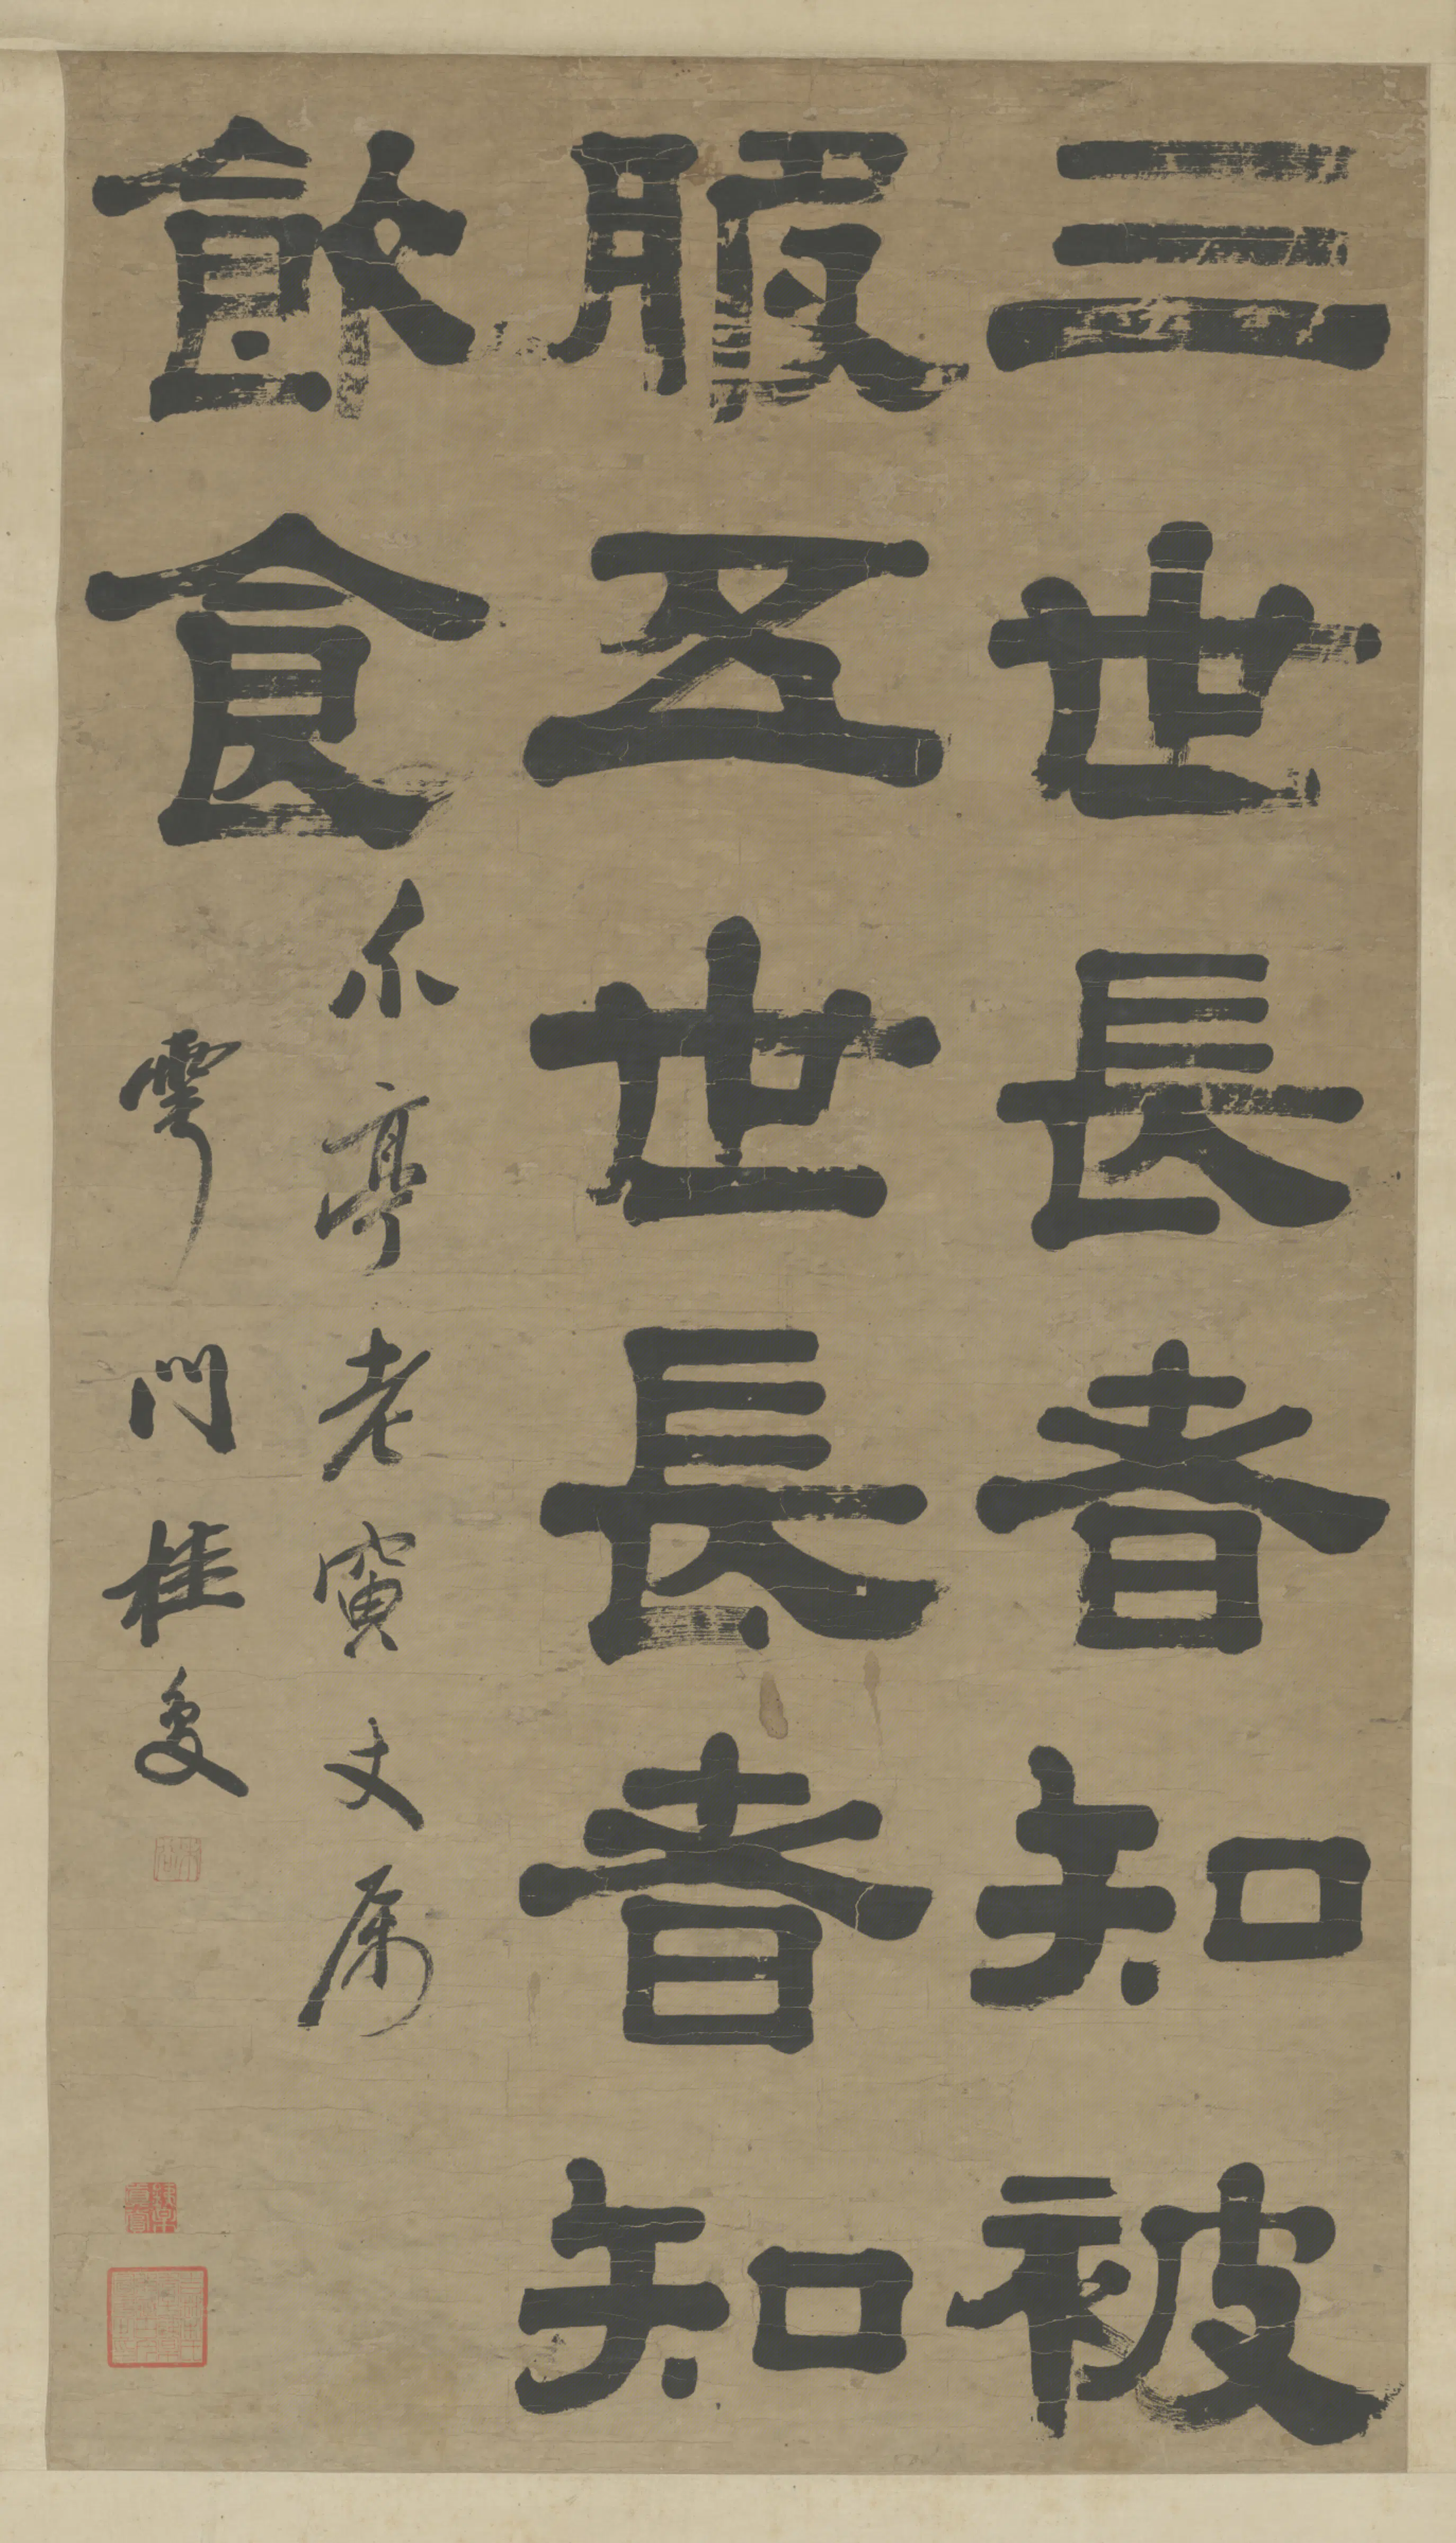 三世長者知被
服五世長者知
飲食
尒亭老寅丈属
雩門桂馥